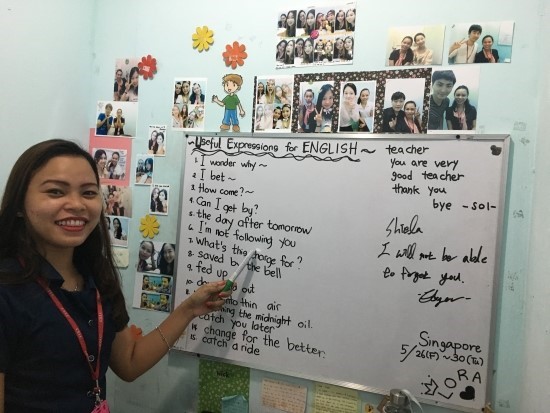 ~Useful Expressions for ENGLISH~
1. I wonder why ~
2. I bet ~
3. How come? ~
4. Can I get by?
5. the day after tomorrow
6. I'm not following you
7. What's this charge for?
8. saved by the bell
9. fed up
10. out
thin air
the midnight oil.
catch you later
14. change for the better.
15. catch a ride
teacher
you are very
good teacher
thank you
bye -sol-
Shiela
I will not be able
to forget you.
Singapore
5/26(F)~30(Tu)